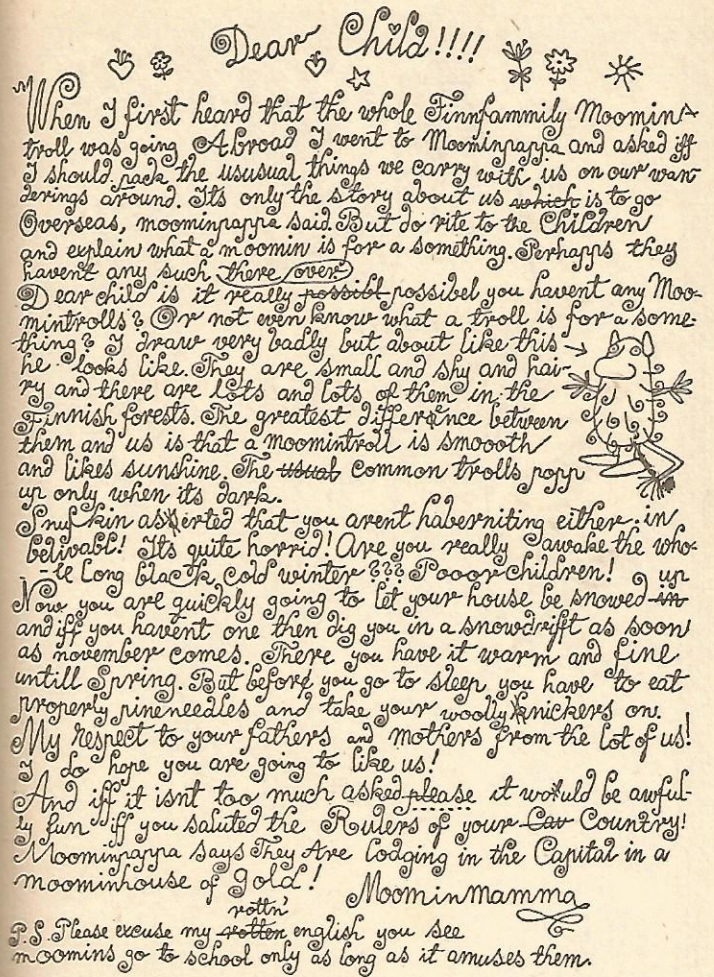 Dear Child!!!!
When I first heard that the whole Finnfammily Moomin-
troll was going Abroad I went to Moominpappa and asked iff
I should pack the ususual things we carry with us on our wan
derings around. Its only the story about us which is to go
Overseas, moominpappa said. But do rite to the Children
and explain what a moomin is for a something. Perhapps they
havent any such there over.
Dear child is it really possibl possibel you havent any Moo-
mintrolls? Or not even know what a troll is for a some-
thing? I draw very badly but about like this →
he looks like. They are small and shy and hai-
ry and there are lots and lots of them in the
Finnish forests. The greatest differance between
them and us is that a moomintroll is smoooth
and likes sunshine. The usual common trolls popp
up only when its dark.
Snufkin asserted that you arent haberniting either. in
belivabl! Its quite horrid! Are you really awake the who-
-le Long black cold winter??? Pooor children! up
Now you are quickly going to let your house be snowed in
and iff you havent one then dig you in a snowdrifft as soon
as november comes. There you have it warm and fine
untill Spring. But before you go to sleep you have to eat
properly pineneedles and take your woolly knickers on.
My Respect to your fathers and mothers from the lot of us!
I do hope you are going to like us!
And iff it isnt too much asked please it would be awful-
ly fun iff you saluted the Rulers of your Cav Country!
Moominpappa says They Are Lodging in the Capital in a
moominhouse of gold!
Moominmamma
rottn'
P.S. Please excuse my rotten english you see
moomins go to school only as long as it amuses them.